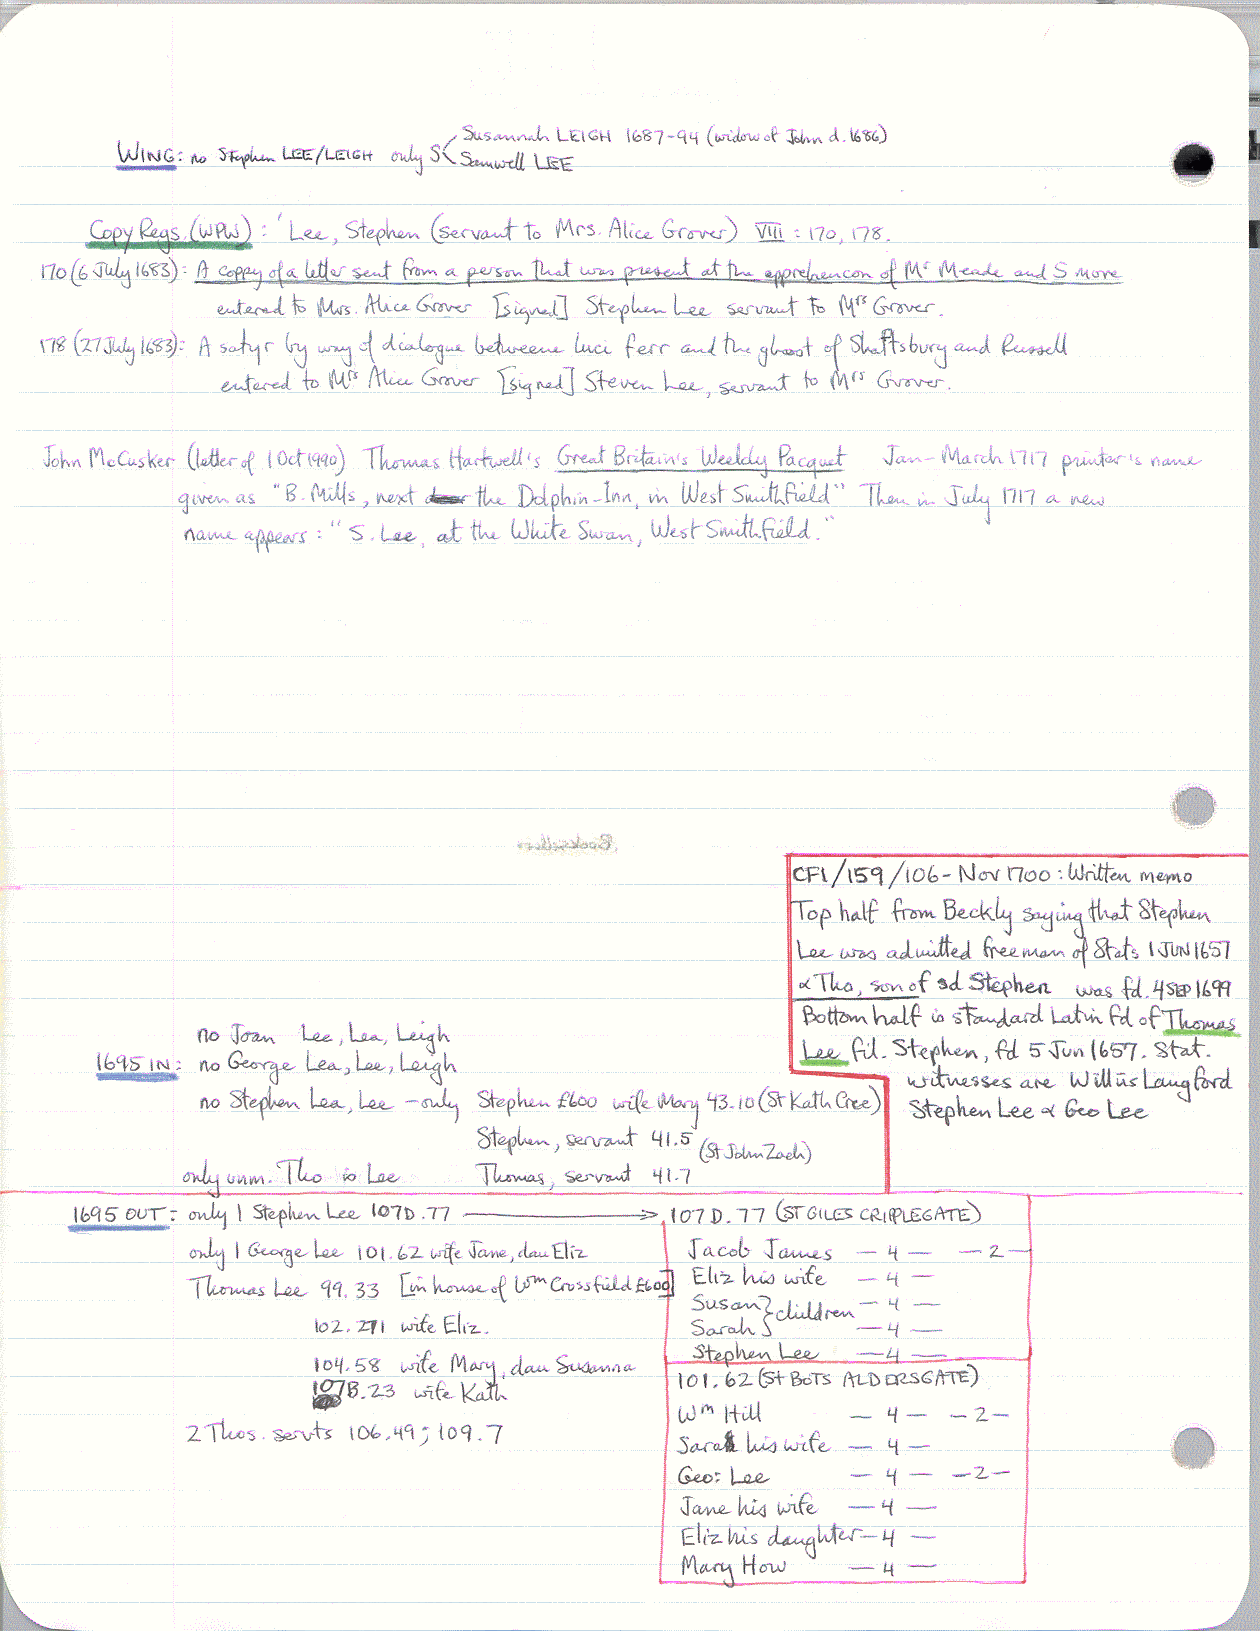 Susannah LEIGH 1687-94 (widow of John d. 1686)
WING: no Stephen LEE/LEIGH only S
Samwell LEE
Copy Regs. (WPW): 'Lee, Stephen (servant to Mrs. Alice Grover) VIII: 170, 178.
170 (6 July 1683): A coppy of a letter sent from a person that was present at the apprehencon of Mr Meade and S more
entered to Mrs. Alice Grover [signed] Stephen Lee servant to Mrs Grover.
178 (27 July 1683): A satyr by way of dialogue betweene Luci ferr and the ghost of Shaftsbury and Russell
entered to Mrs Alice Grover [signed] Steven Lee, servant to Mrs Grover.
John McCusker (letter of 1 Oct 1990) Thomas Hartwell's Great Britain's Weekly Pacquet Jan-March 1717 printer's name
given as "B. Mills, next the Dolphin-Inn, in West Smithfield" Then in July 1717 a new
name appears: "S. Lee, at the White Swan, West Smithfield."
Booksellers
CF1/159/106 - Nov 1700: Written memo
Top half from Beckly saying that Stephen
Lee was admitted freeman of Stats 1 JUN 1657
& Tho, son of sd Stephen was fd. 4 SEP 1699
Bottom half is standard Latin fd of Thomas
Lee fil. Stephen, fd 5 Jun 1657. Stat.
witnesses are Willus Langford
Stephen Lee & Geo Lee
no Joan Lee, Lea, Leigh
1695 IN: no George Lea, Lee, Leigh
no Stephen Lea, Lee - only Stephen £600 wife Mary 43.10 (St Kath Cree)
Stephen, servant 41.5 (St John Zach)
only unm. Tho is Lee Thomas, servant 41.7
1695 OUT: only 1 Stephen Lee 107D.77
only 1 George Lee 101.62 wife Jane, dau Eliz
Thomas Lee 99.33 [in house of Wm Crossfield £600]
102.271 wife Eliz.
104.58 wife Mary, dau Susanna
107B.23 wife Kath
2 Thos. servts 106.49; 109.7
107D.77 (ST GILES CRIPPLEGATE)
Jacob James - 4 - - 2 -
Eliz his wife - 4 -
Susan } children - 4 -
Sarah } - 4 -
Stephen Lee - 4 -
101.62 (St BOTS ALDERSGATE)
Wm Hill - 4 - - 2 -
Sarah his wife - 4 -
Geo: Lee - 4 - - 2 -
Jane his wife - 4 -
Eliz his daughter - 4 -
Mary How - 4 -